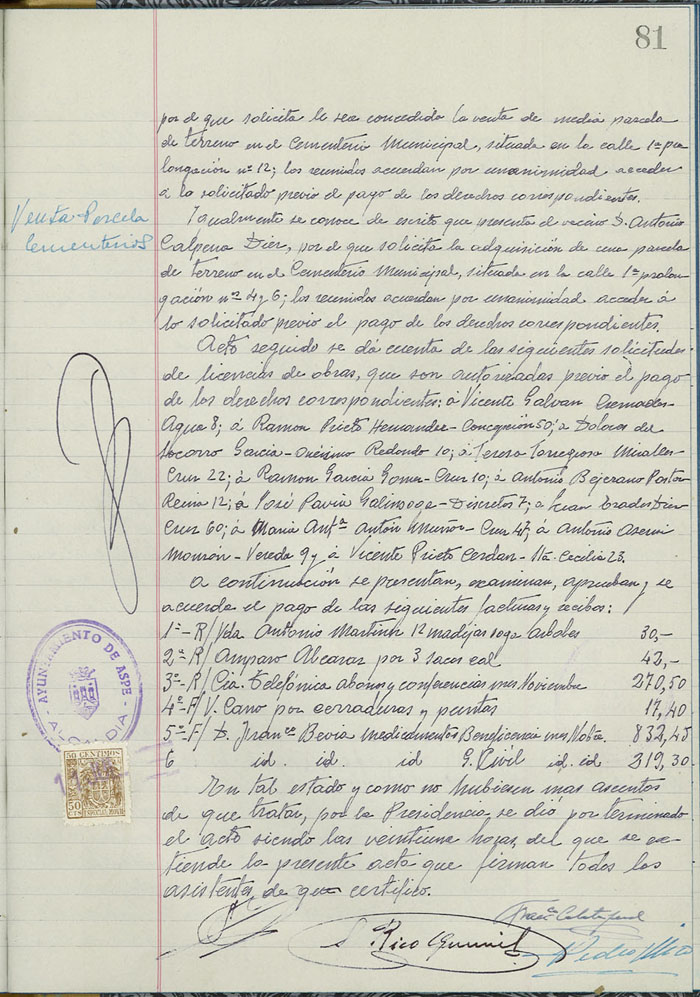 81
por el que solicita le sea concedida la venta de media parcela
de terreno en el Cementerio Municipal, situada en la calle 1ª pro
longación nº 12; los reunidos acuerdan por unanimidad acceder
a lo solicitado previo el pago de los derechos correspondientes.
Venta Parcela
Cementerios
Igualmente se conoce de escrito que presenta el vecino D. Antonio
Calpena Dier, por el que solicita la adquisición de una parcela
de terreno en el Cementerio Municipal, situada en la calle 1ª prolon-
gación nº 4 y 6; los reunidos acuerdan por unanimidad acceder á
lo solicitado previo el pago de los derechos correspondientes.
Acto seguido se dá cuenta de las siguientes solicitudes
de licencias de obras, que son autorizadas previo el pago
de los derechos correspondientes: á Vicente Galvan Cremades-
Agua 8; á Ramon Prieto Hernandez-Concepción 50; á Dolores del
Socorro Garcia-Onésimo Redondo 10; á Teresa Torregrosa Miralles-
Cruz 22; á Ramon Garcia Gomez-Cruz 10; á Antonio Bejerano Pastor-
Reina 12; á José Pavia Galinsoga-Discretos 7; a Juan Prades Dier-
Cruz 60; á Maria Antª Antón Muñoz-Cruz 47; á Antonio Asensi
Monzón-Vereda 9 y á Vicente Prieto Cerdan-Stª. Cecilia 23.
A continuación se presentan, examinan, aprueban y se
acuerda el pago de las siguientes facturas y recibos:
1º-R/ Vda. Antonio Martinez 12 madejas soga arboles 30,-
2º R/ Amparo Alcaraz por 3 sacos cal 42,-
3º-R/ Cia. Telefónica abonos y conferencias mes Noviembre 270,50
4º-F/ V. Cano por cerraduras y puntas 17,40
5º-F/ D. Franco Bevia medicamentos Beneficencia mes Novbe. 832,45
6 id. id. id G. Civil id. id 219,30
En tal estado y como no hubiesen mas asuntos
de que tratar, por la Presidencia se dió por terminado
el acto siendo las veintiuna horas, del que se ex-
tiende la presente acta que firman todos los
asistentes, de que certifico.
AYUNTAMIENTO DE ASPE
ALCALDIA
50 CENTIMOS
50
CTS
ESPECIAL MOVIL
Rico
Pedro